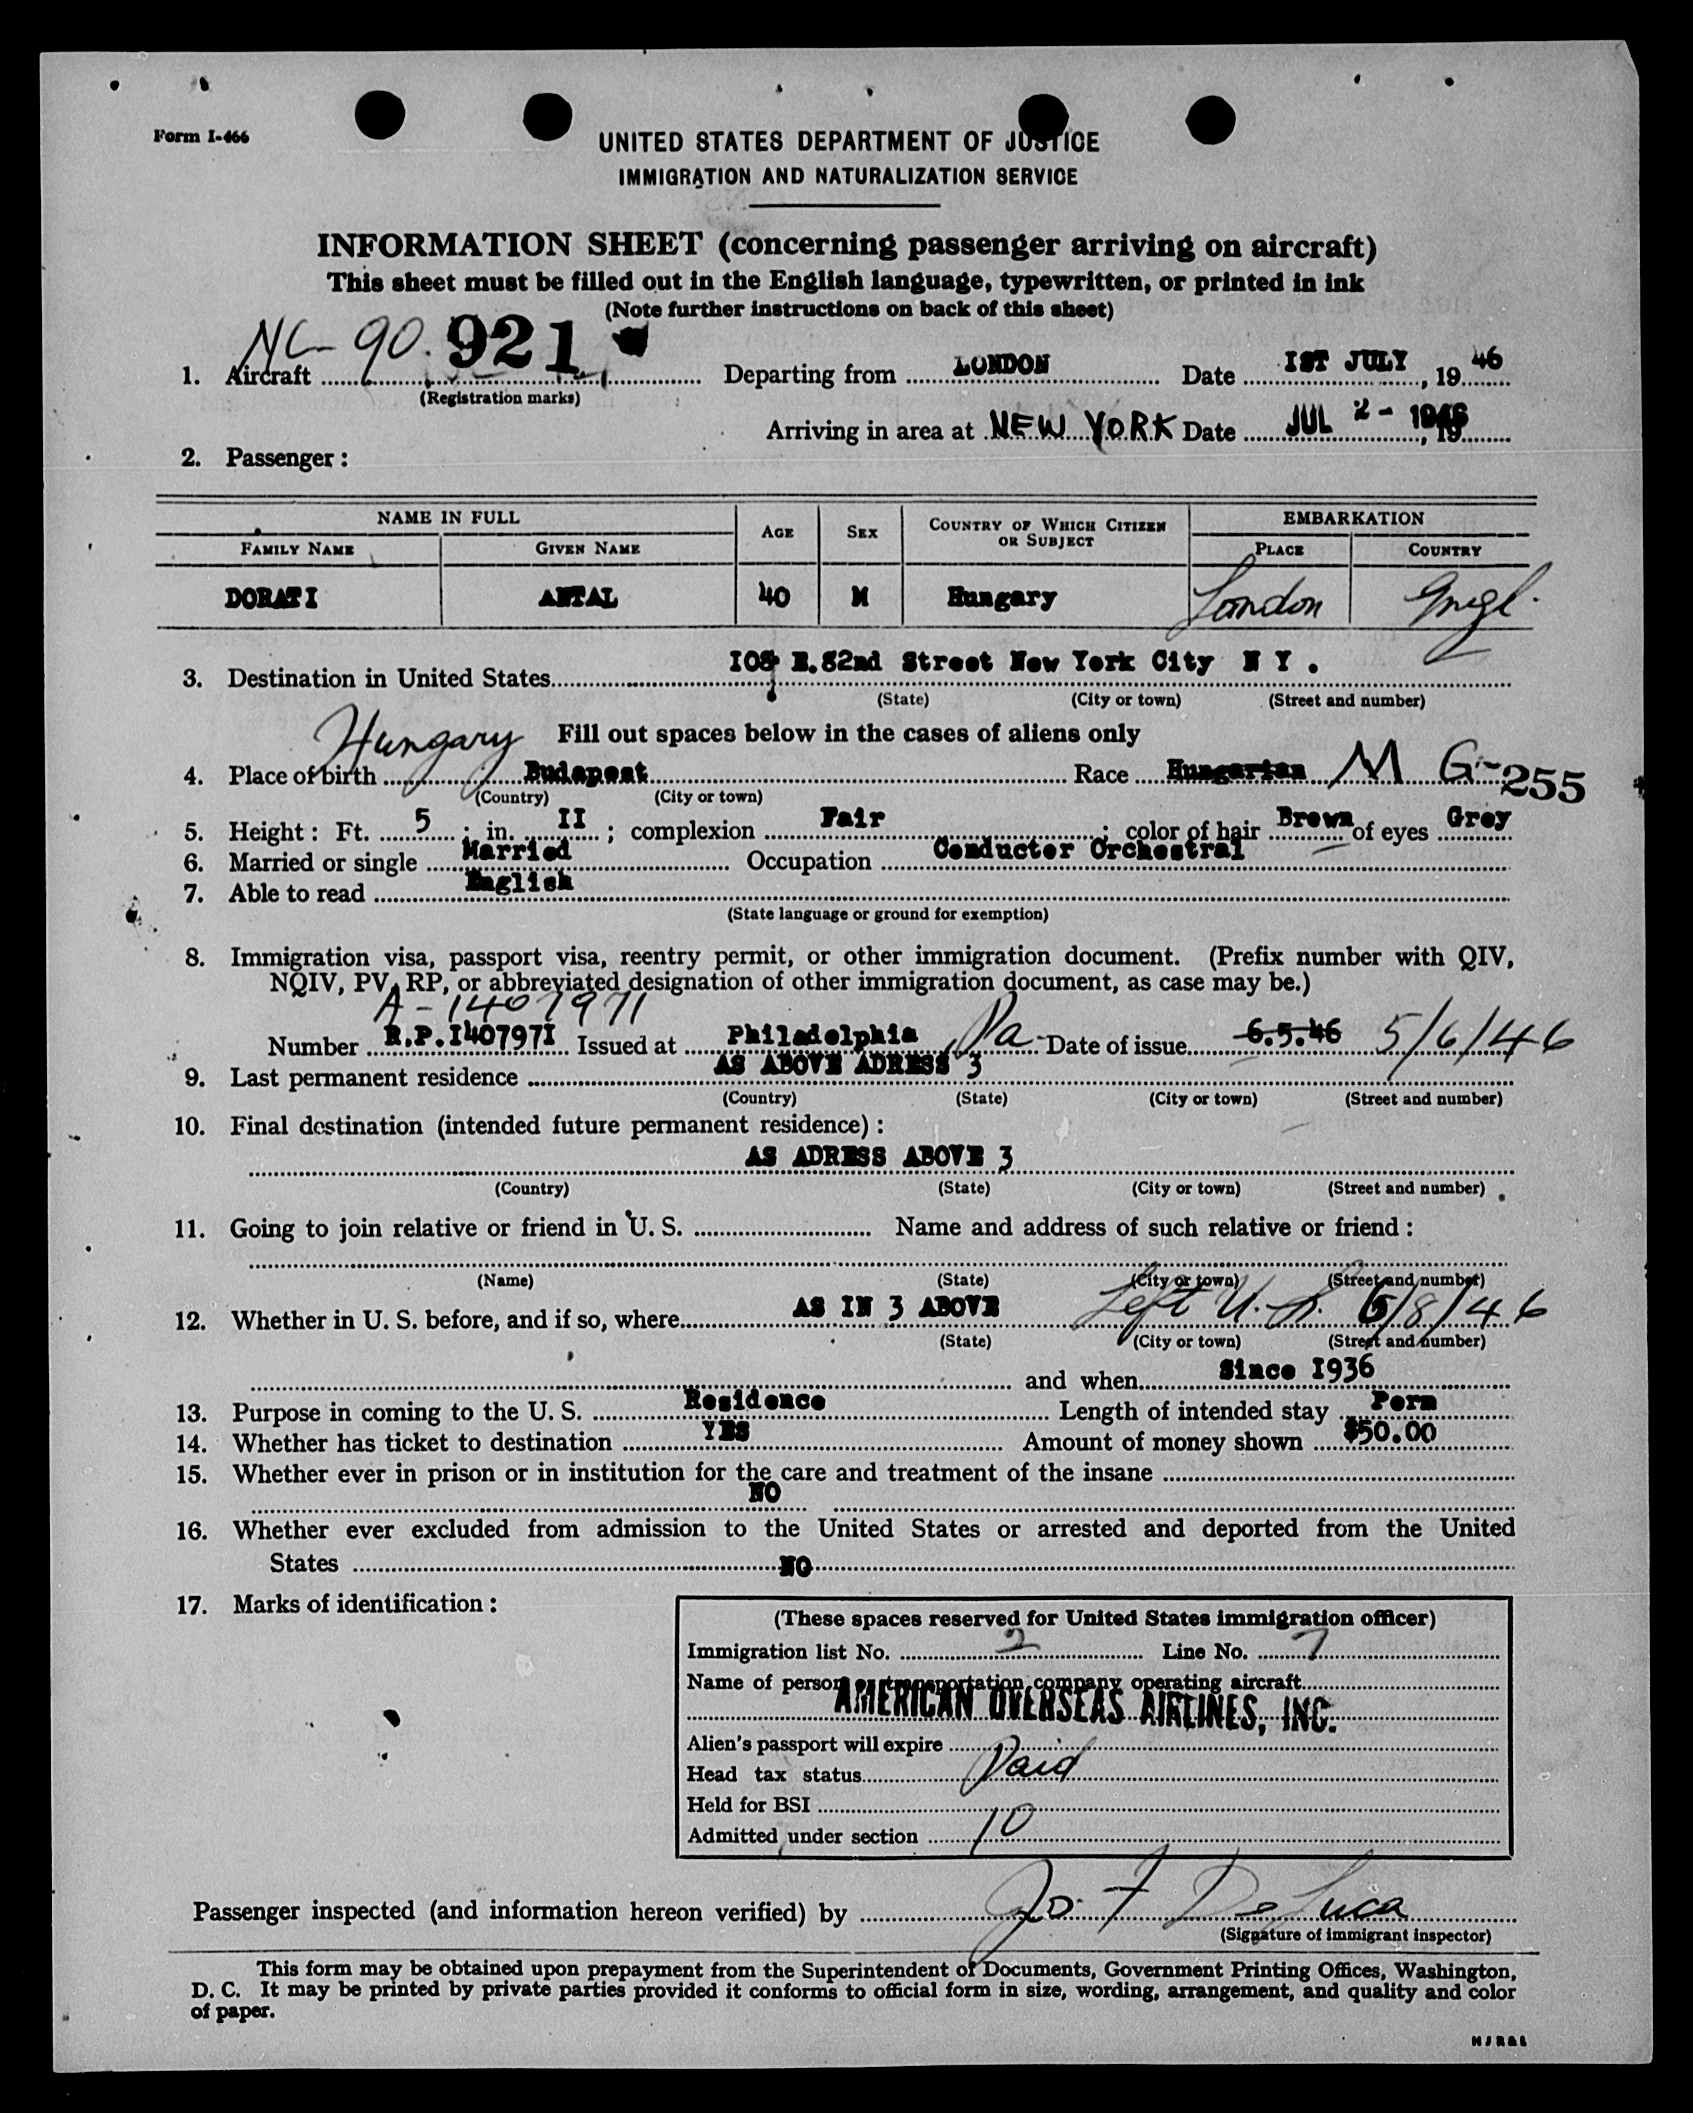 Form I-466
UNITED STATES DEPARTMENT OF JUSTICE
IMMIGRATION AND NATURALIZATION SERVICE
INFORMATION SHEET (concerning passenger arriving on aircraft)
This sheet must be filled out in the English language, typewritten, or printed in ink
(Note further instructions on back of this sheet)
1. Aircraft NC-90.921 Departing from LONDON Date IST JULY, 19 46
(Registration marks)
Arriving in area at NEW YORK Date JUL 2 - 1946, 19
2. Passenger:
NAME IN FULL AGE SEX COUNTRY OF WHICH CITIZEN OR SUBJECT EMBARKATION
FAMILY NAME GIVEN NAME PLACE COUNTRY
DORATI ANTAL 40 M Hungary London Engl.
3. Destination in United States E.82nd Street New York City N Y .
(State) (City or town) (Street and number)
Fill out spaces below in the cases of aliens only
4. Place of birth Hungary Budapest Race Hungarian M G-255
(Country) (City or town)
5. Height: Ft. 5; in. II; complexion Fair; color of hair Brown of eyes Grey
6. Married or single Married Occupation Conductor Orchestral
7. Able to read English
(State language or ground for exemption)
8. Immigration visa, passport visa, reentry permit, or other immigration document. (Prefix number with QIV,
NQIV, PV, RP, or abbreviated designation of other immigration document, as case may be.)
A-1407971
Number R.P.I40797I Issued at Philadelphia, Pa Date of issue 6.5.46 5/6/46
9. Last permanent residence AS ABOVE ADRESS 3
(Country) (State) (City or town) (Street and number)
10. Final destination (intended future permanent residence):
AS ADRESS ABOVE 3
(Country) (State) (City or town) (Street and number)
11. Going to join relative or friend in U. S. Name and address of such relative or friend:
(Name) (State) (City or town) (Street and number)
12. Whether in U. S. before, and if so, where AS IN 3 ABOVE Left U.S. 5/8/46
(State) (City or town) (Street and number)
and when Since I936
13. Purpose in coming to the U. S. Residence Length of intended stay Perm
14. Whether has ticket to destination YES Amount of money shown $50.00
15. Whether ever in prison or in institution for the care and treatment of the insane
NO
16. Whether ever excluded from admission to the United States or arrested and deported from the United
States NO
17. Marks of identification:
(These spaces reserved for United States immigration officer)
Immigration list No. 2 Line No. 7
Name of person or transportation company operating aircraft
AMERICAN OVERSEAS AIRLINES, INC.
Alien's passport will expire
Head tax status Paid
Held for BSI
Admitted under section 10
Passenger inspected (and information hereon verified) by Jo. F De Luca
(Signature of immigrant inspector)
This form may be obtained upon prepayment from the Superintendent of Documents, Government Printing Offices, Washington,
D. C. It may be printed by private parties provided it conforms to official form in size, wording, arrangement, and quality and color
of paper.